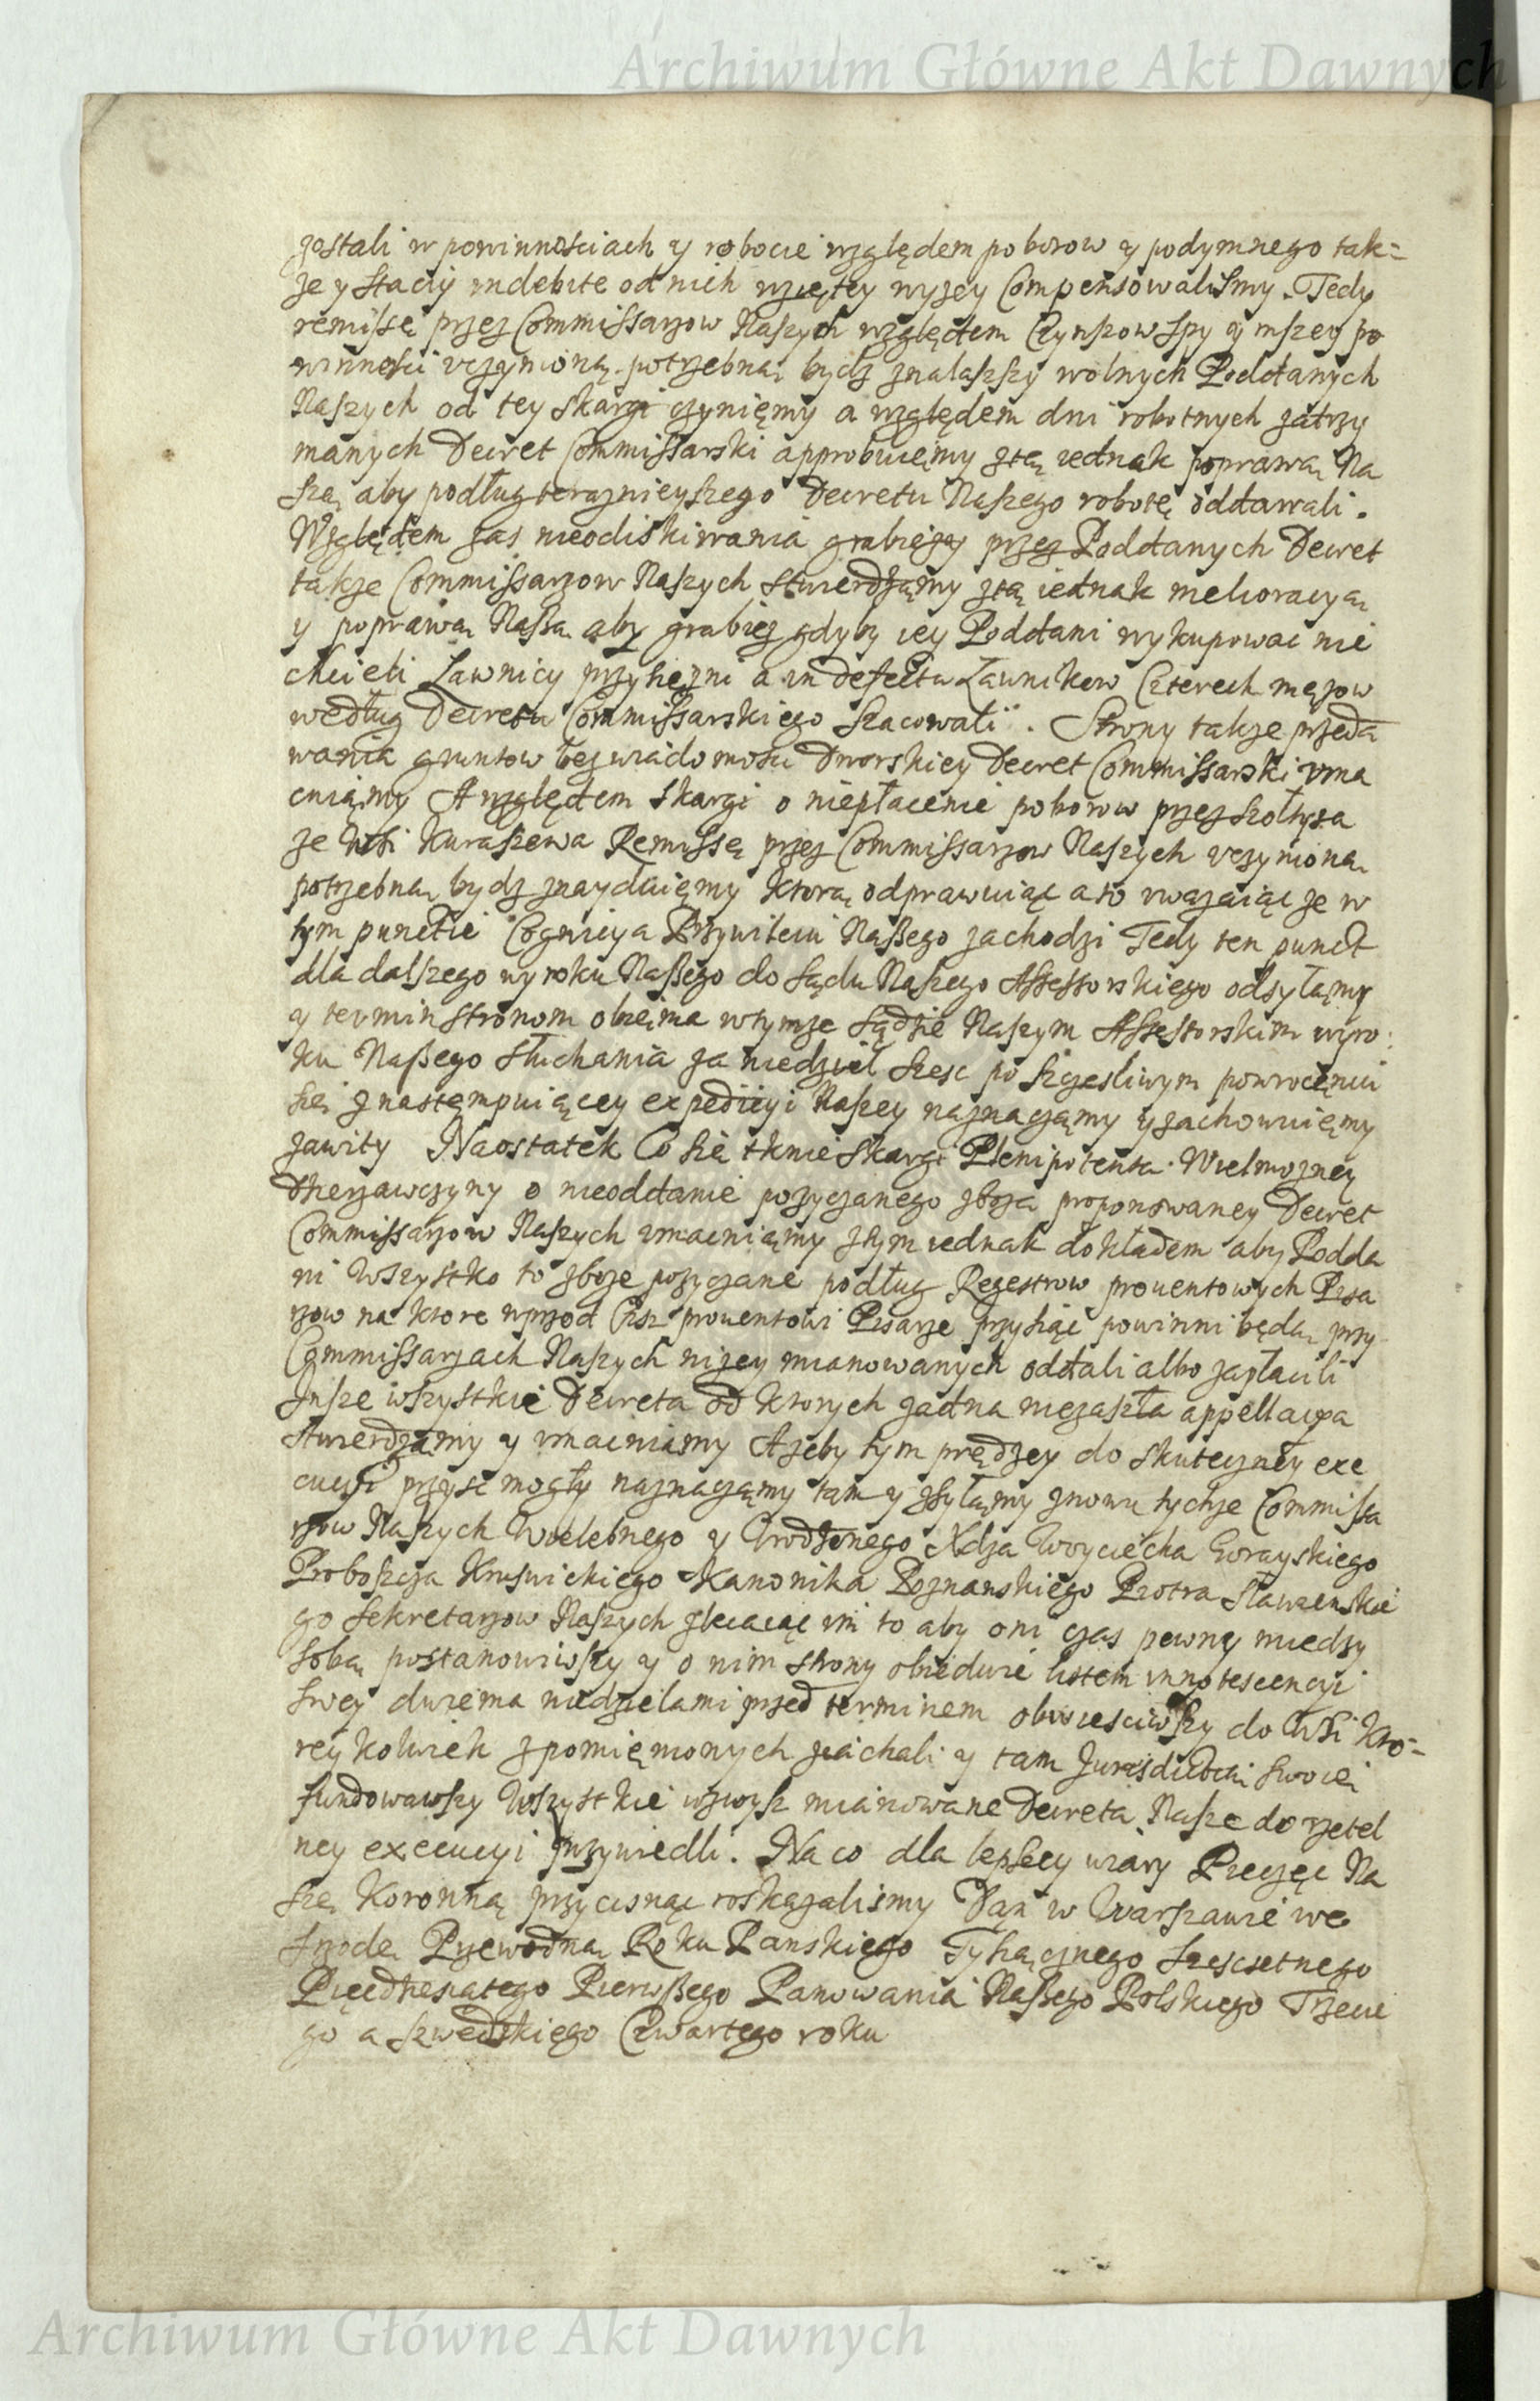 Archiwum Główne Akt Dawnych
zostali w powinnościach y robocie względem poborow y podymnego tak=
ze y stacÿ indebite od nich wziętey wyzey Compensowalismy. Tedy
remissę przez Commissarzow Naszych względem Czynszow Spy y inszey po
winnosci vczynioną potrzebną bydz znalaszszy wolnych Poddanych
Naszych od tey skargi czynięmy a względem dni robotnych zatrzy
manych Decret Commissarski approbuięmy ztą iednak poprawą Na
szą aby podług teraznieyszego Decretu Naszego robotę oddawali.
Względem zas nieodiskiwania grabiezy przez Poddanych Decret
takze Commissarzow Naszych stwierdzamy ztą iednak melioracyą
y poprawą Naszą aby grabiez gdyby iey Poddani wykupowac nie
chcieli Lawnicy przysięzni a in defectu Lawnikow Czterech męzow
według Decretu Commissarskiego szacowali. Strony takze przeda
wania gruntow bez wiadomosci Dworskiey Decret Commissarski vma
cniąmy A względem skargi o niepłacenie poborow przez szołtysa
ze Wsi Kuraszewa Remissę przez Commissarzow Naszych vczynioną
potrzebną bydz znayduięmy ktorą odprawuiąc a to vwazaiąc ze w
tym punctie Cognicya Przywileiu Naszego zachodzi Tedy ten punct
dla dalszego wyroku Naszego do sądu Naszego Assessorskiego odsyłamy
y termin stronom obiema wtymze sądzie Naszym Assessorskim wyro:
ku Naszego słuchania za niedziel szesc po szczesliwym powrocęniu
się z nastęmpuiącey expedicyi Naszey naznaczamy y zachowuięmy
zawity Naostatek Co się tknie skargi Plenipotenta Wielmozney
dzierzawczyny o nieoddanie pozyczanego zboza proponowaney Decret
Commissarzow Naszych vmacniąmy ztym iednak dokładem aby Podda
ni wszystko to zboze pozyczane podług Regestrow prouentowych Pisa
rzow na ktore wprzod Ciz prouentowi Pisarze przysiąc powinni będą przy
Commissarzach Naszych nizey mianowanych oddali albo zapłacili
Insze wszystkie Decreta od ktorych zadna niezaszła appellacya
stwierdzamy y vmacniamy Azeby tym prędzey do skuteczney exe
cucyi przysc mogły naznaczamy tam y zsyłamy znowu tychze Commissa
rzow Naszych Wielebnego y Vrodzonego Xdza Woyciecha Gorayskiego
Proboszcza Kruswickiego Kanonika Poznanskiego Piotra Slawienskie
go Sekretarzow Naszych zlecaiąc im to aby oni czas pewny miedzy
sobą postanowiwszy y o nim strony obiedwie listem innotescencyi
swey dwiema niedzielami przed terminem obwiesciwszy do Wsi kto=
reykolwiek z pomięnionych ziachali y tam Jurisdictią swoię
fundowawszy wszystkie wzwysz mianowane Decreta Nasze do rzetel
ney execucyi przywiedli. Na co dla lepszey wiary Pieczęc Na
szę Koronną przycisnąc roskazalismy Dąn w Warszawie we
srzodę Przewodną Roku Panskiego Tysiącznego szescsetnego
Pięcdziesiątego Pierwszego Panowania Naszego Polskiego Trzecie
go a szwedzkiego Czwartego roku
Archiwum Główne Akt Dawnych